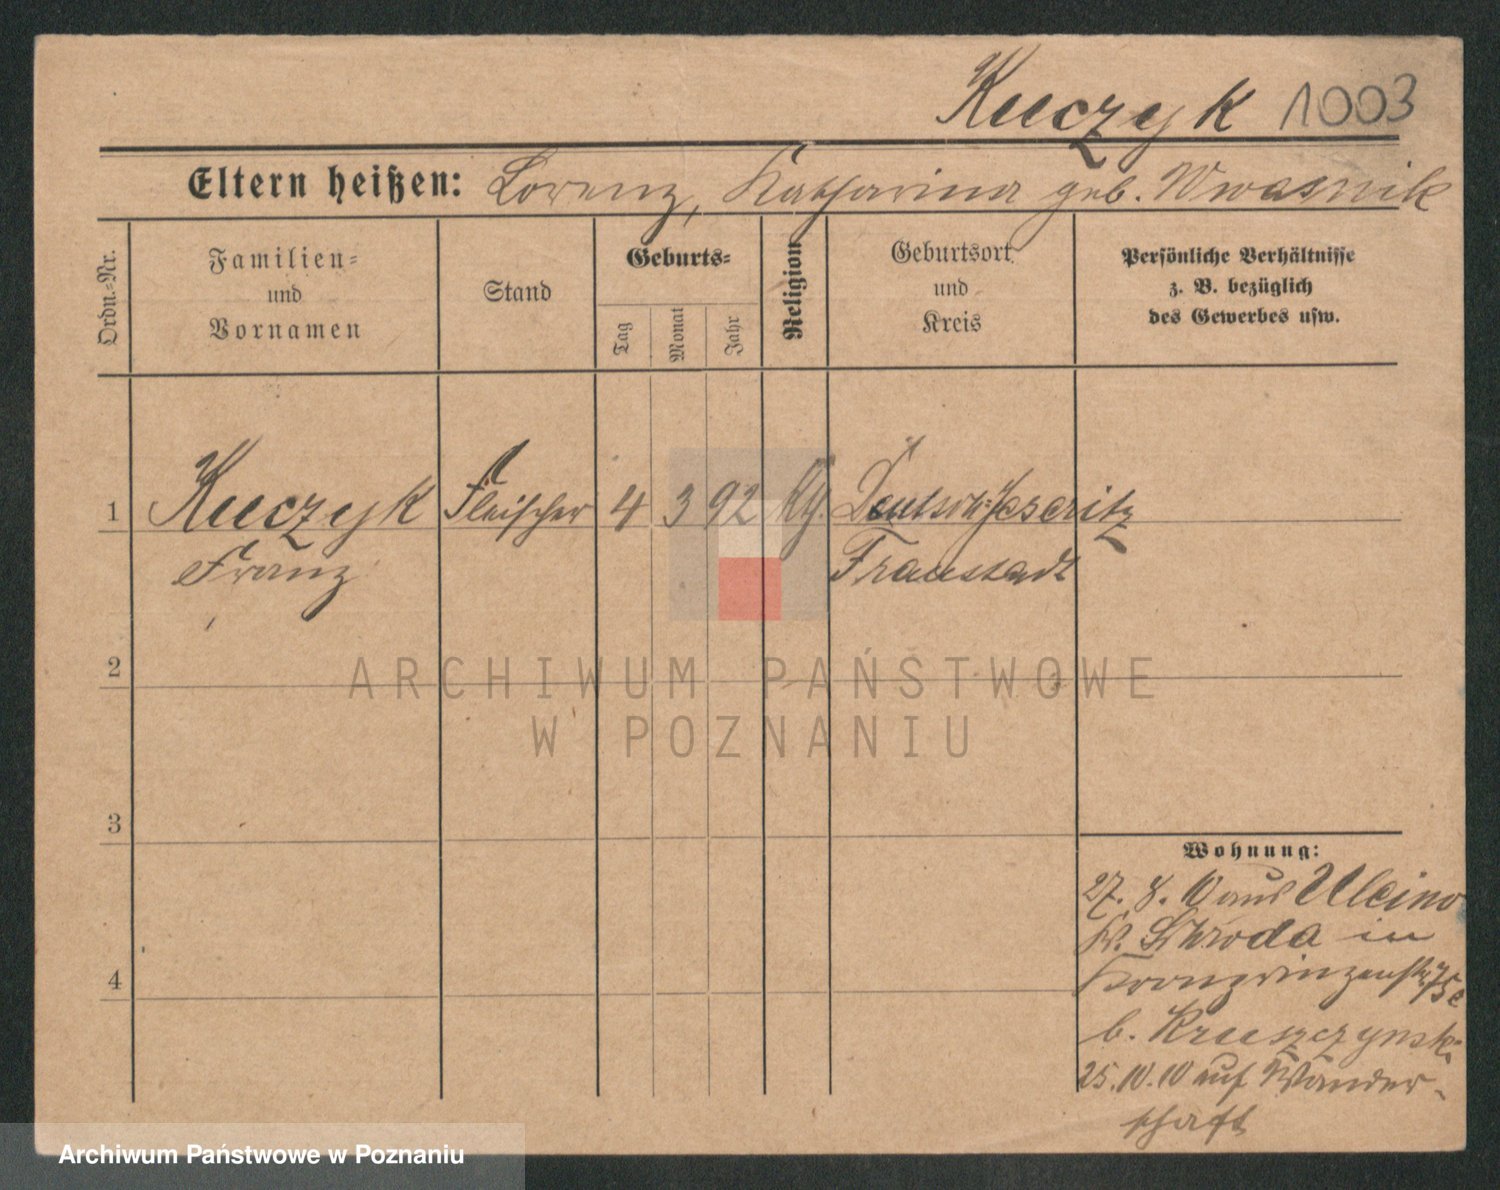 Kuczyk 1003
Eltern heißen: Lorenz, Katharina geb. Wwasnik
Ordn.-Nr.
Familien-
und
Vornamen
Stand
Geburts-
Tag
Monat
Jahr
Religion
Geburtsort
und
Kreis
Persönliche Verhältnisse
z. B. bezüglich
des Gewerbes usw.
1 Kuczyk Fleischer 4 3 92 Deutsch-Jeseritz
Franz Fraustadt
2
ARCHIWUM PAŃSTWOWE
W POZNANIU
3
Wohnung:
27. 8. 10 aus Ulcino
Kr. Schroda in
Kronprinzenstr. 75e
b. Kruszczynski
4
25.10.10 auf Wander-
schaft
Archiwum Państwowe w Poznaniu